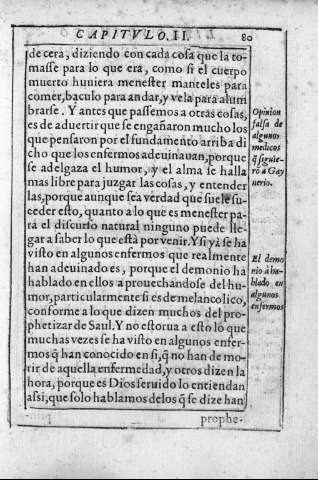 CAPITVLO. II. 80
de cera, diziendo con cada cosa que la to-
masse para lo que era, como si el cuerpo
muerto huviera menester manteles para
comer, baculo para andar, y vela para alum
brarse. Y antes que passemos a otras cosas,
es de advertir que se engañaron mucho los
que pensaron por el fundamento arriba di
cho que los enfermos adeuinauan, porque
se adelgaza el humor, y el alma se halla
mas libre para juzgar las cosas, y entender
las, porque aunque sea verdad que suele su-
ceder esto, quanto a lo que es menester pa-
ra el discurso natural ninguno puede lle-
gar a saber lo que està por venir. Y si ya se ha
visto en algunos enfermos que realmente
han adeuinado es, porque el demonio ha
hablado en ellos aprouechandose del hu-
mor, particularmente si es de melancolico,
conforme a lo que dizen muchos del pro-
phetizar de Saul. Y no estorua a esto lo que
muchas vezes se ha visto en algunos enfer-
mos q̃ han conocido en si, q̃ no han de mo-
rir de aquella enfermedad, y otros dizen la
hora, porque es Dios seruido lo entiendan
assi, que solo hablamos de los q̃ se dize han
prophe-
Opinion
falsa de
algunos
medicos
q̃ siguie-
rō a Gay
nerio.
El demo
nio à ha-
blado en
algunos
enfermos